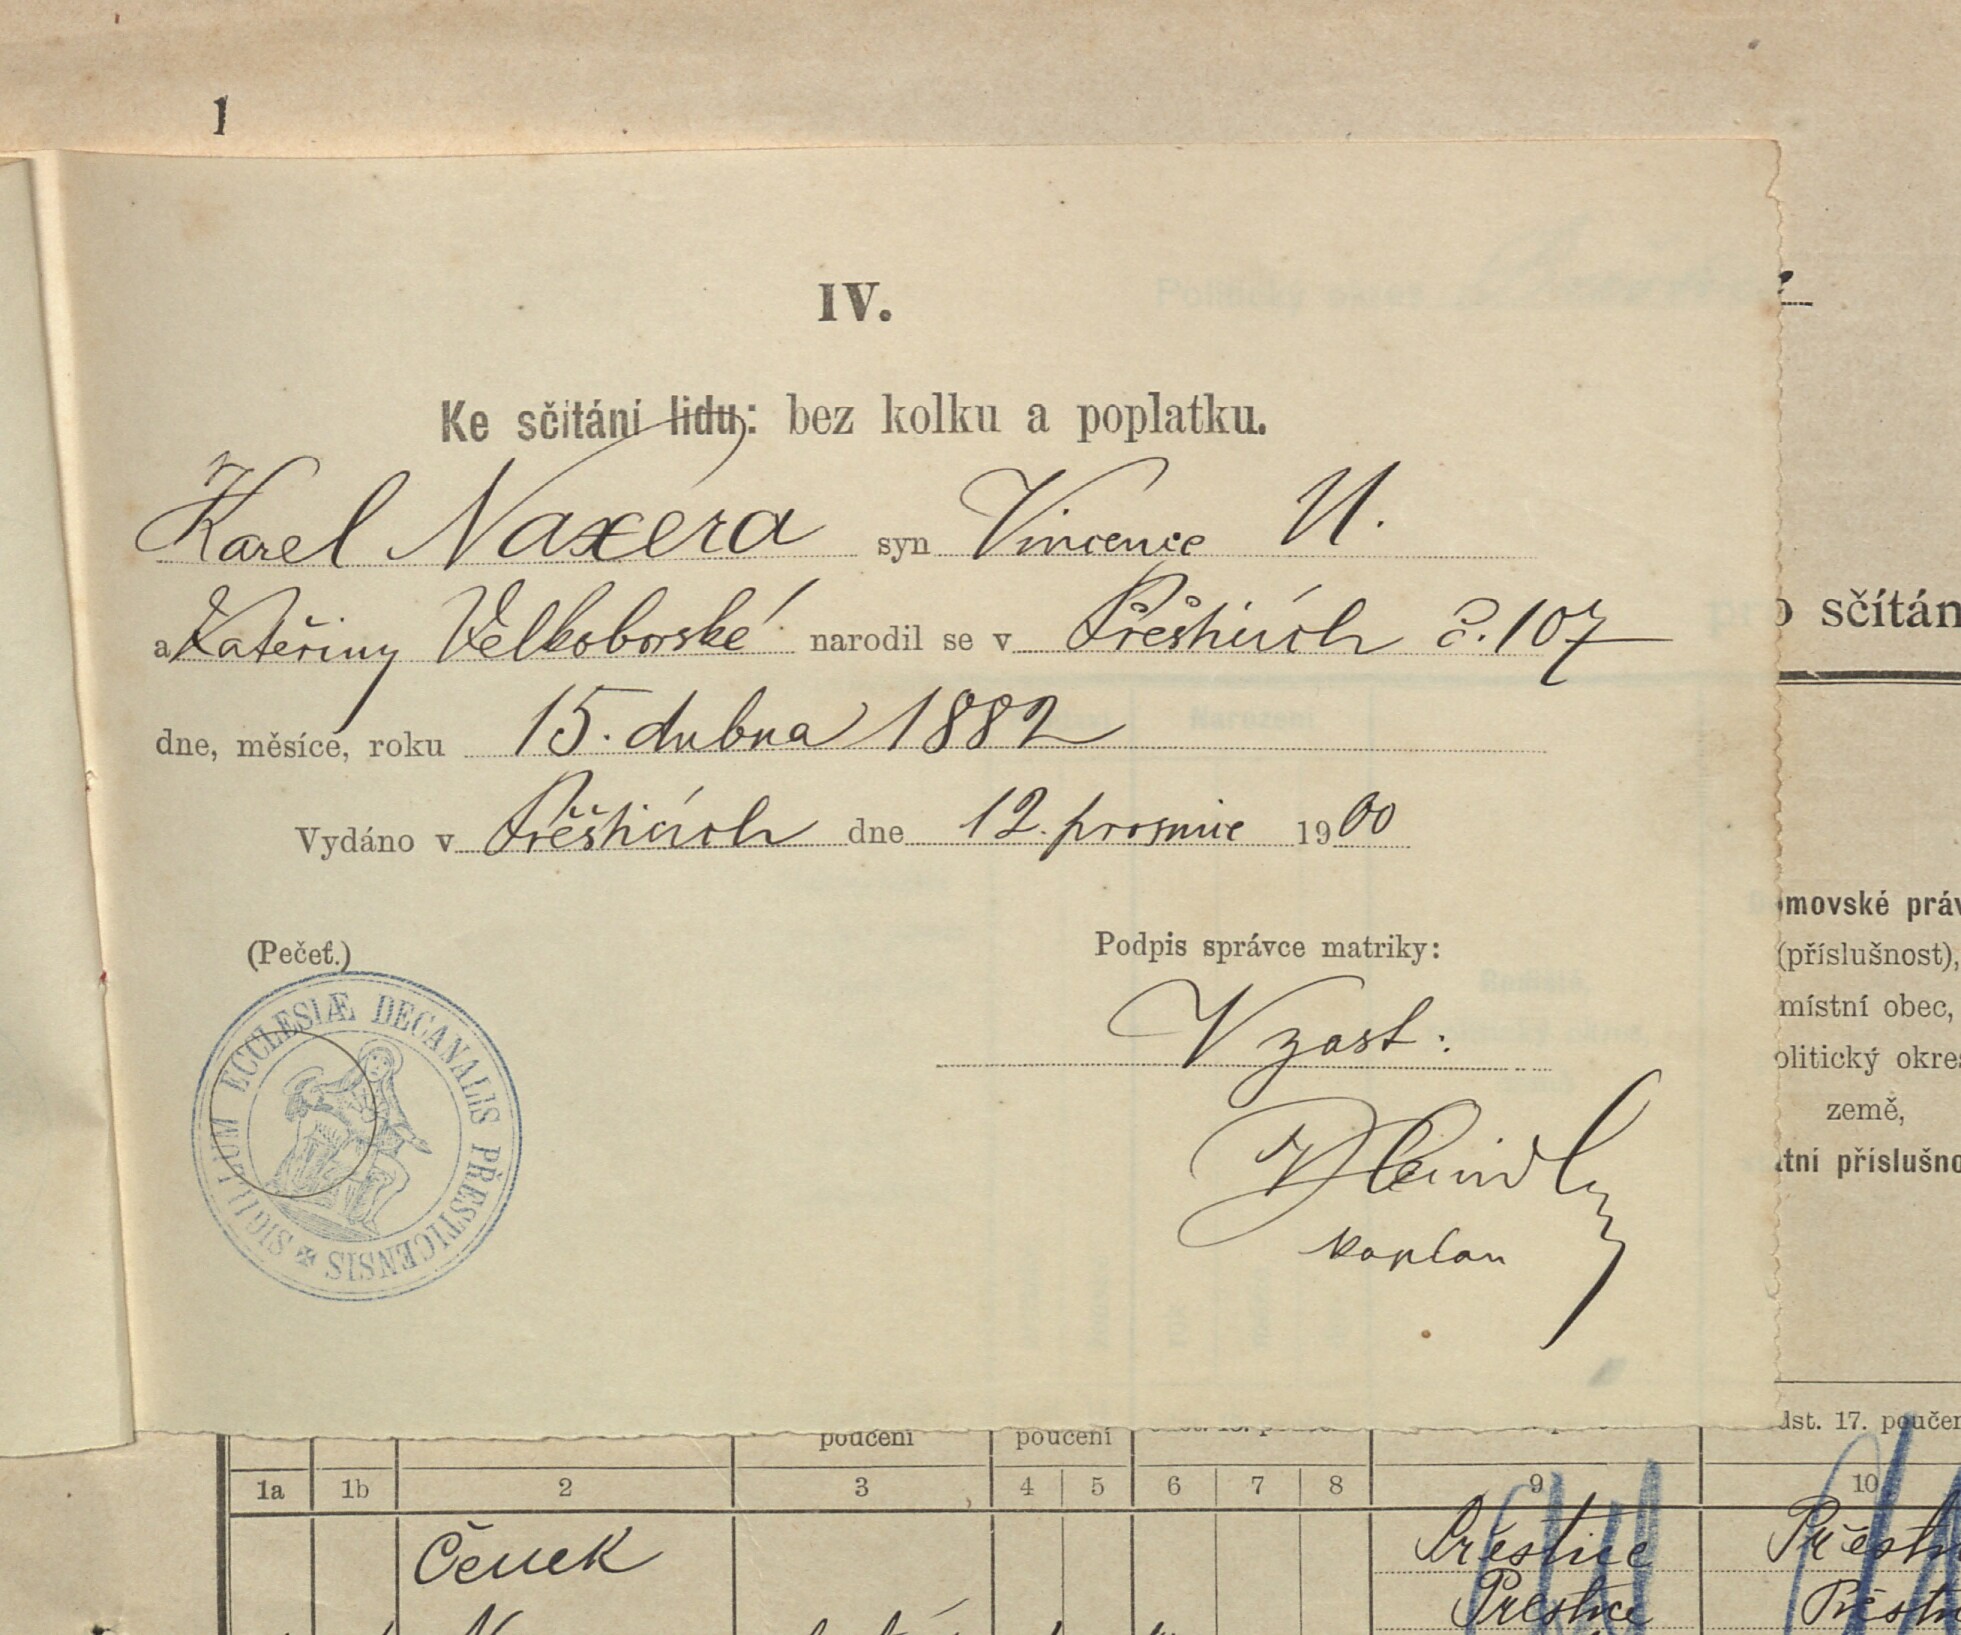 1
IV.
Ke sčítání lidu: bez kolku a poplatku.
Karel Naxera syn Vincence N.
a Kateřiny Velkoborské narodil se v Přešticích č. 107
dne, měsíce, roku 15. dubna 1882
Vydáno v Přešticích dne 12. prosince 1900
(Pečeť.)
Podpis správce matriky:
SIGILLUM ECCLESIÆ DECANALIS PŘESTICENSIS
V zast:
kaplan
sčítán
movské práv
(příslušnost),
místní obec,
olitický okres
země,
tní příslušno
dst. 17. poučen
poučení poučení
1a 1b 2 3 4 5 6 7 8 9 10
Čeněk Přeštice Přešti
Přeštice Přešt